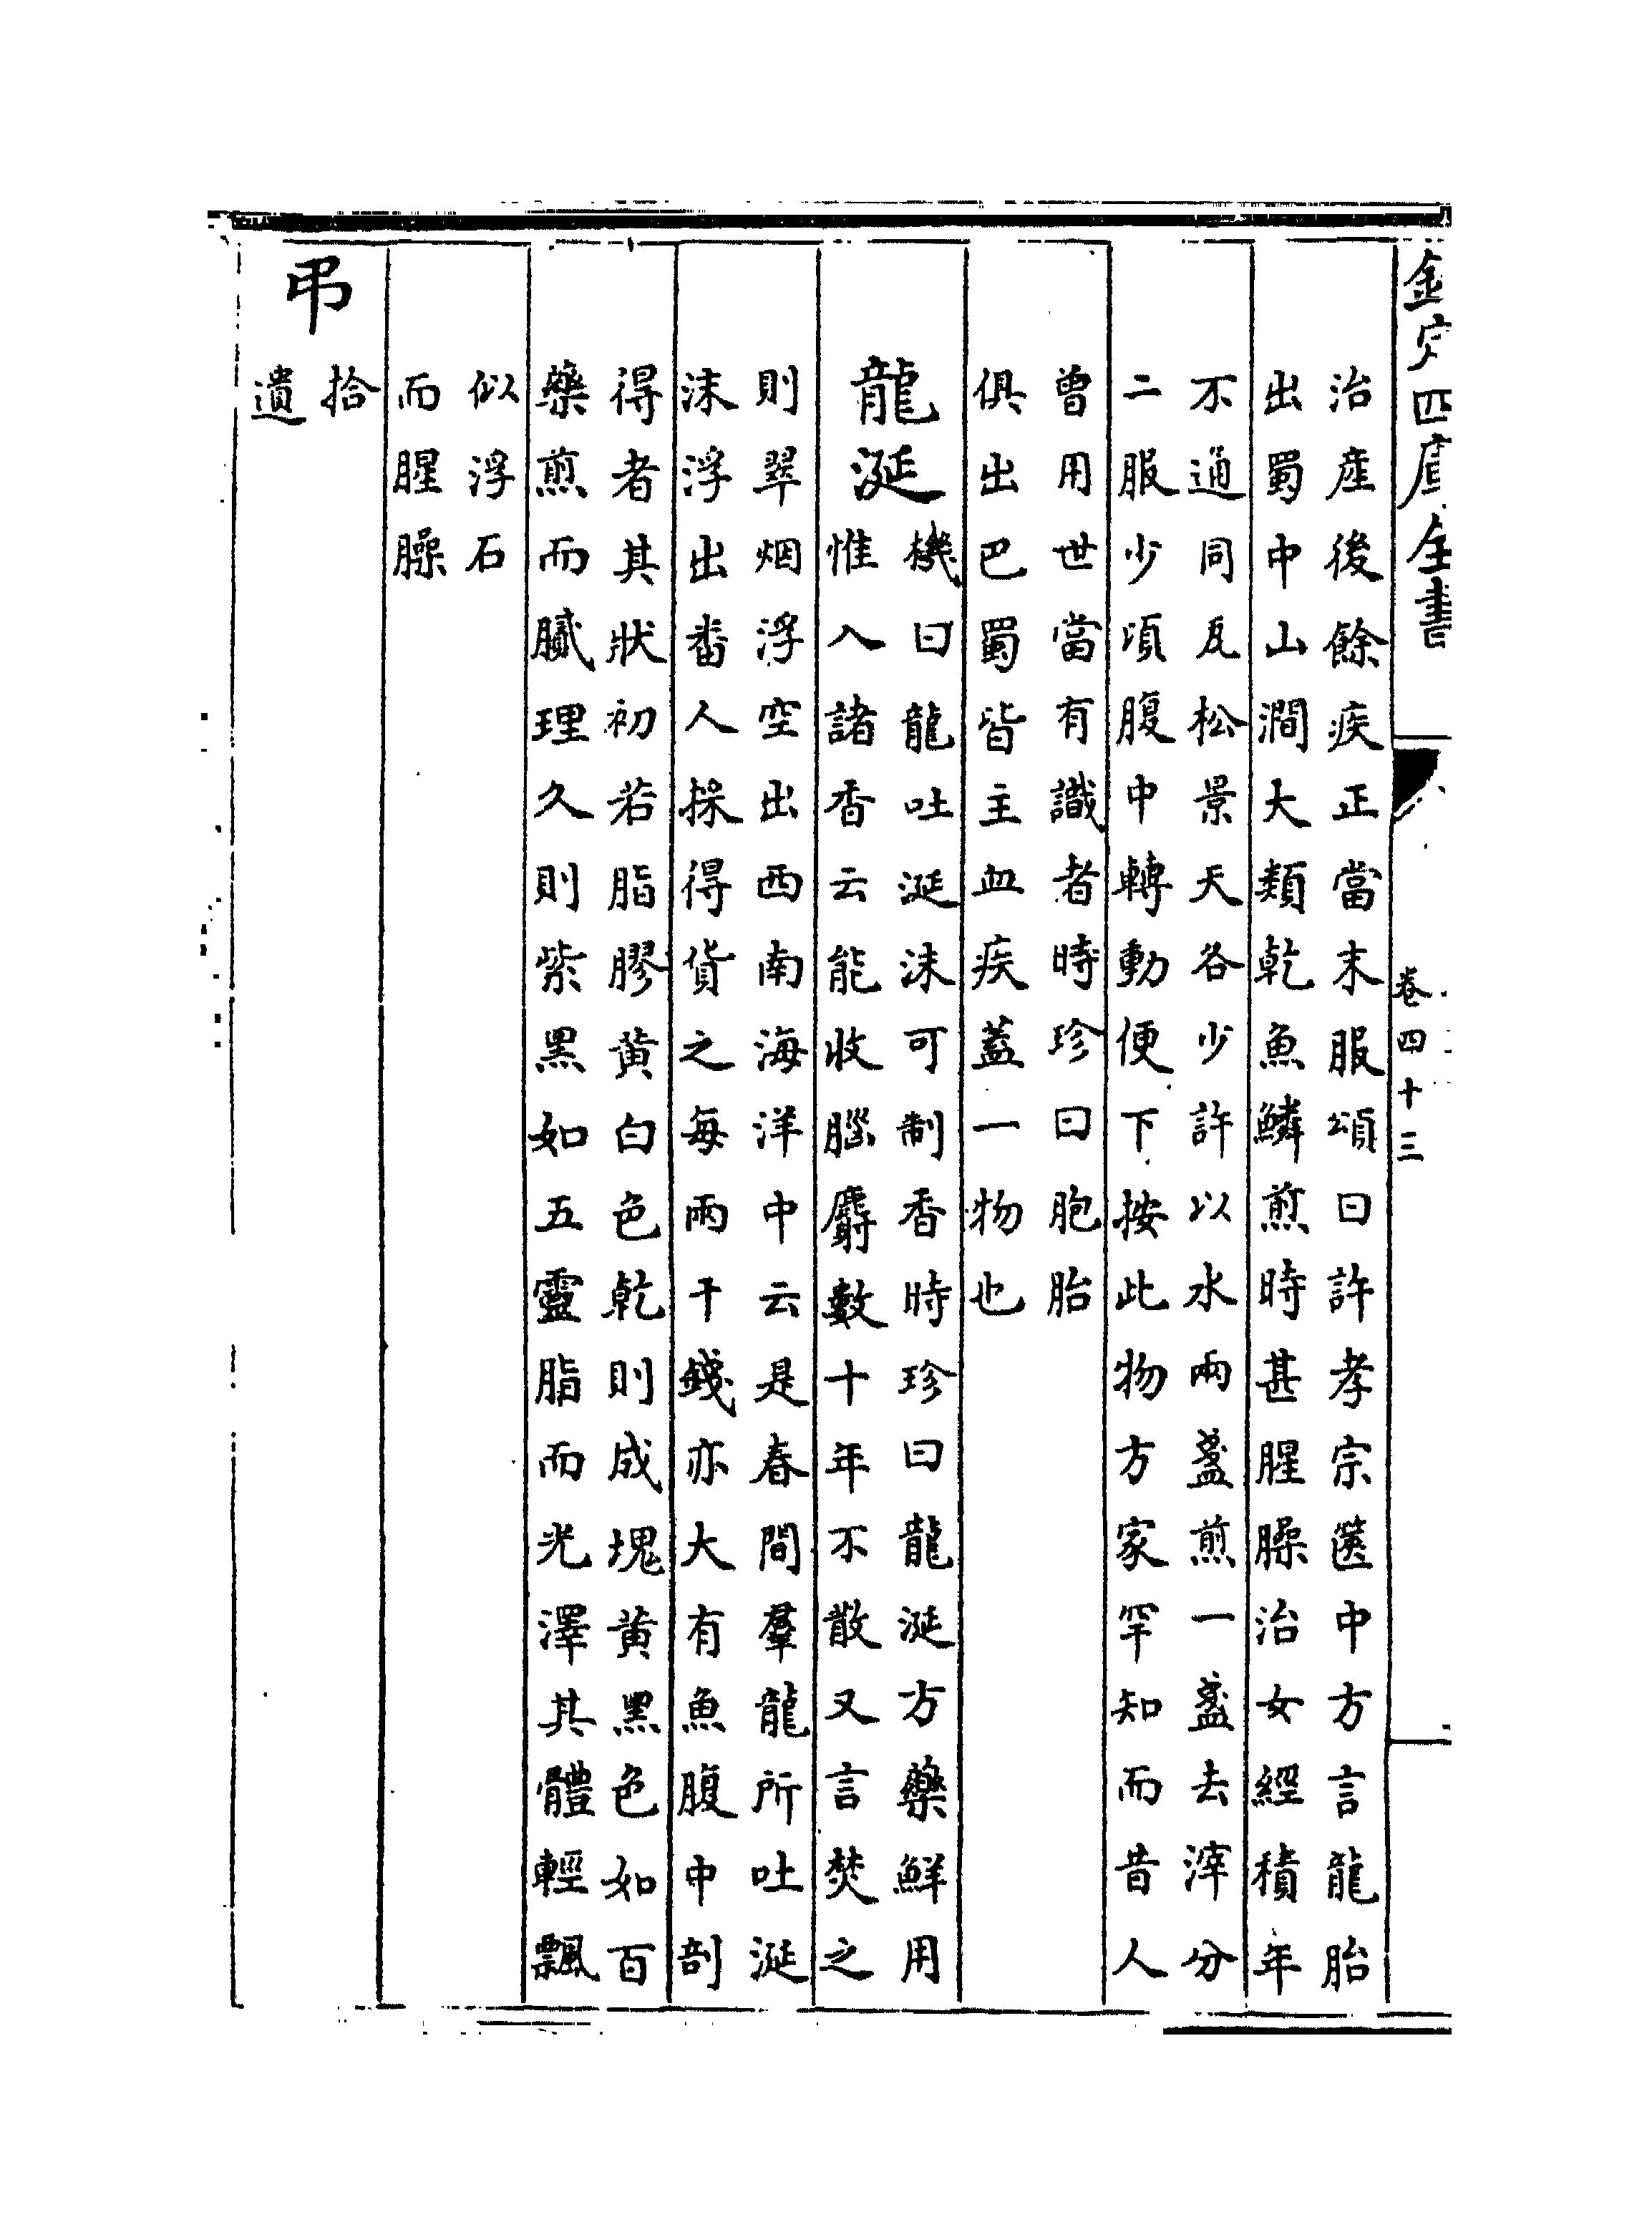 欽定四庫全書
卷四十三
治産後餘疾正當末服頌曰許孝宗篋中方言龍胎
出蜀中山澗大類乾魚鱗煎時甚腥臊治女經積年
不通同瓦松景天各少許以水兩盞煎一盞去滓分
二服少頃腹中轉動便下按此物方家罕知而昔人
曾用世當有識者時珍曰胞胎
俱出巴蜀皆主血疾蓋一物也
龍涎
機曰龍吐涎沫可制香時珍曰龍涎方藥鮮用
惟入諸香云能收腦麝數十年不散又言焚之
則翠烟浮空出西南海洋中云是春間羣龍所吐涎
沫浮出番人採得貨之每兩千錢亦大有魚腹中剖
得者其狀初若脂膠黄白色乾則成塊黄黑色如百
藥煎而膩理久則紫黑如五靈脂而光澤其體輕飄
似浮石
而腥臊
弔
拾
遺